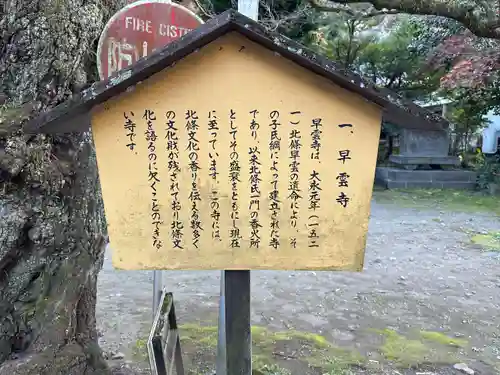 FIRE CIST
一、早雲寺
早雲寺は、大永元年(一五二
一)北條早雲の遺命により、そ
の子氏綱によって建立された寺
であり、以来北條氏一門の香火所
としてその盛衰をともにし現在
に至っています。この寺には
北條文化の香りを伝える数多く
の文化財が残されており北條文
化を語るのに欠くことのできな
い寺です。